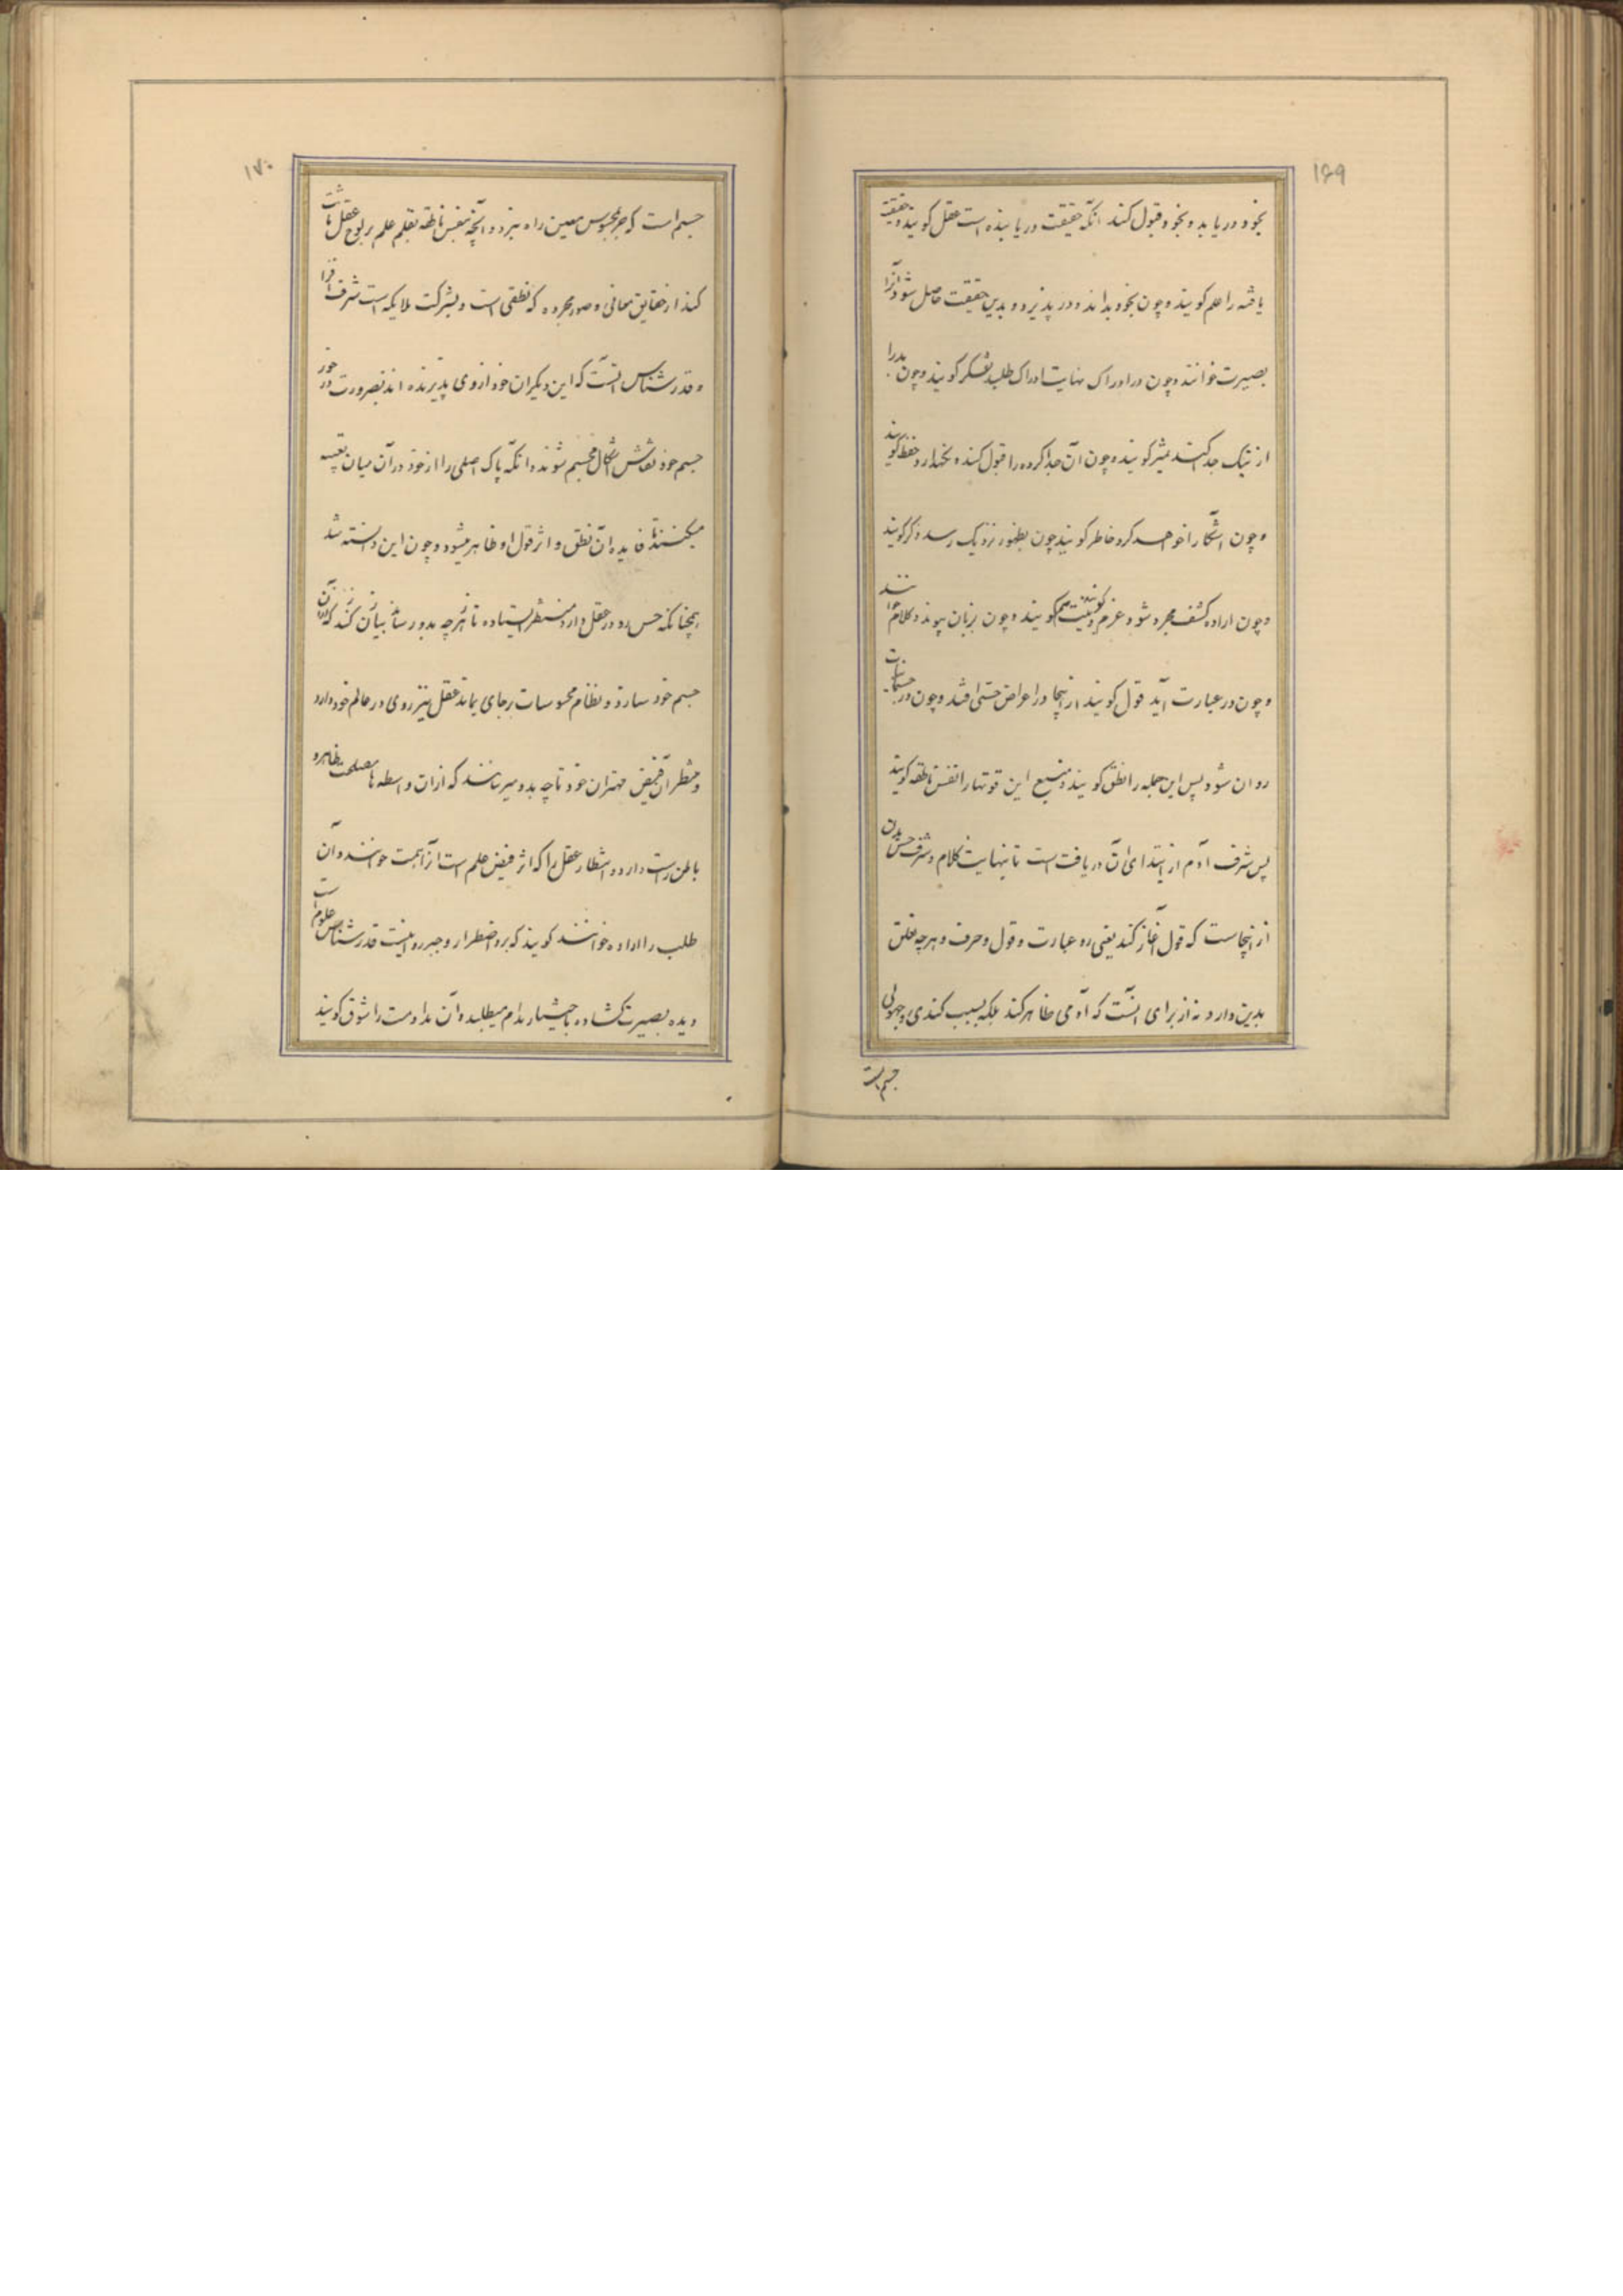 ۱۶۹
بخود دریابد و بخود قبول کند آنکه حقیقت دریابنده است عقل گویند و حقیقت
یافته را علم گویند و چون بخود بداند و در پذیرد و بدین حقیقت حاصل شود آنرا
بصیرت خوانند و چون در ادراک نهایت ادراک طلبد تفکر گویند و چون بد را
از نیک جدا کند تمیز گویند و چون آن جدا کرده را قبول کند و نگهدارد حفظ گویند
و چون آشکارا خواهد کرد خاطر گویند چون بظهور نزدیک رسد ذکر گویند
و چون اراده کشف مجرد شود عزم و نیت گویند و چون بزبان پیوندد کلام خوانند
و چون در عبارت آید قول گویند از اینجا در اعراض حسی افتد و چون در جسمانیات
روان شود پس این جمله را نطق گویند و منبع این قوتها را نفس ناطقه گویند
پس شرف آدم از ابتدای آن دریافت است تا نهایت کلام و شرف حس بدن
از اینجاست که قول آغاز کند یعنی ره عبارت و قول و حرف و هرچه تعلق
بدین دارد نه از برای آنست که آدمی ظاهر کند بلکه بسبب کندی و جهولی
جسم است
۱۷۰
جسم است که جز بمحسوس معین راه نبرد و آنچه نفس ناطقه بقلم علم بر لوح عقل باثبت
کند از حقایق معانی و صور مجرده که نطقی است و بشرکت ملایکه است شرف آنرا
و قدر شناس آنست که این دیگران خود از وی پذیرنده اند بضرورت در خور
جسم خود نقاش اشکال مجسم شوند و آنکه پاک اصلی را از خود در آن میان تعبیه
میکنند تا فایده آن نطق و اثر قول او ظاهر میشود و چون این دانسته شد
همچنانکه حس رو در عقل دارد منتظر ایستاده تا هرچه بدو رساند بیان کند که از آن
جسم خود سازد و نظام محسوسات برجای بماند عقل نیز روی در عالم خود دارد
و منتظر آن فیض مهتران خود تا چه بدو میرسانند که از آن واسطه ها مصلحت ظاهر و
باطن راست دارد و انتظار عقل را که اثر فیض علم است آنرا همت خوانند و آن
طلب را اراده خوانند گویند که برو اضطرار و جبر روا نیست قدر شناس علوم است
دیده بصیرت گشاده باختیار مدام میطلبد و آن مداومت را شوق گویند